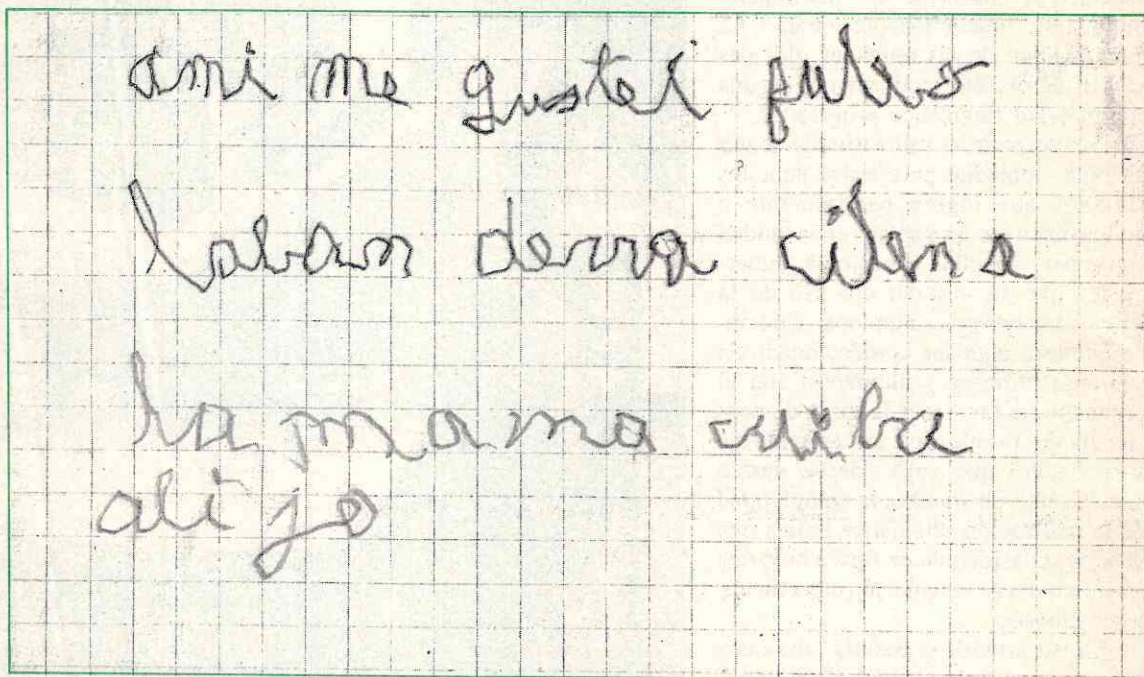 ami me gustei fulbo
laban derra cilena
la mama cuiba
ali jo